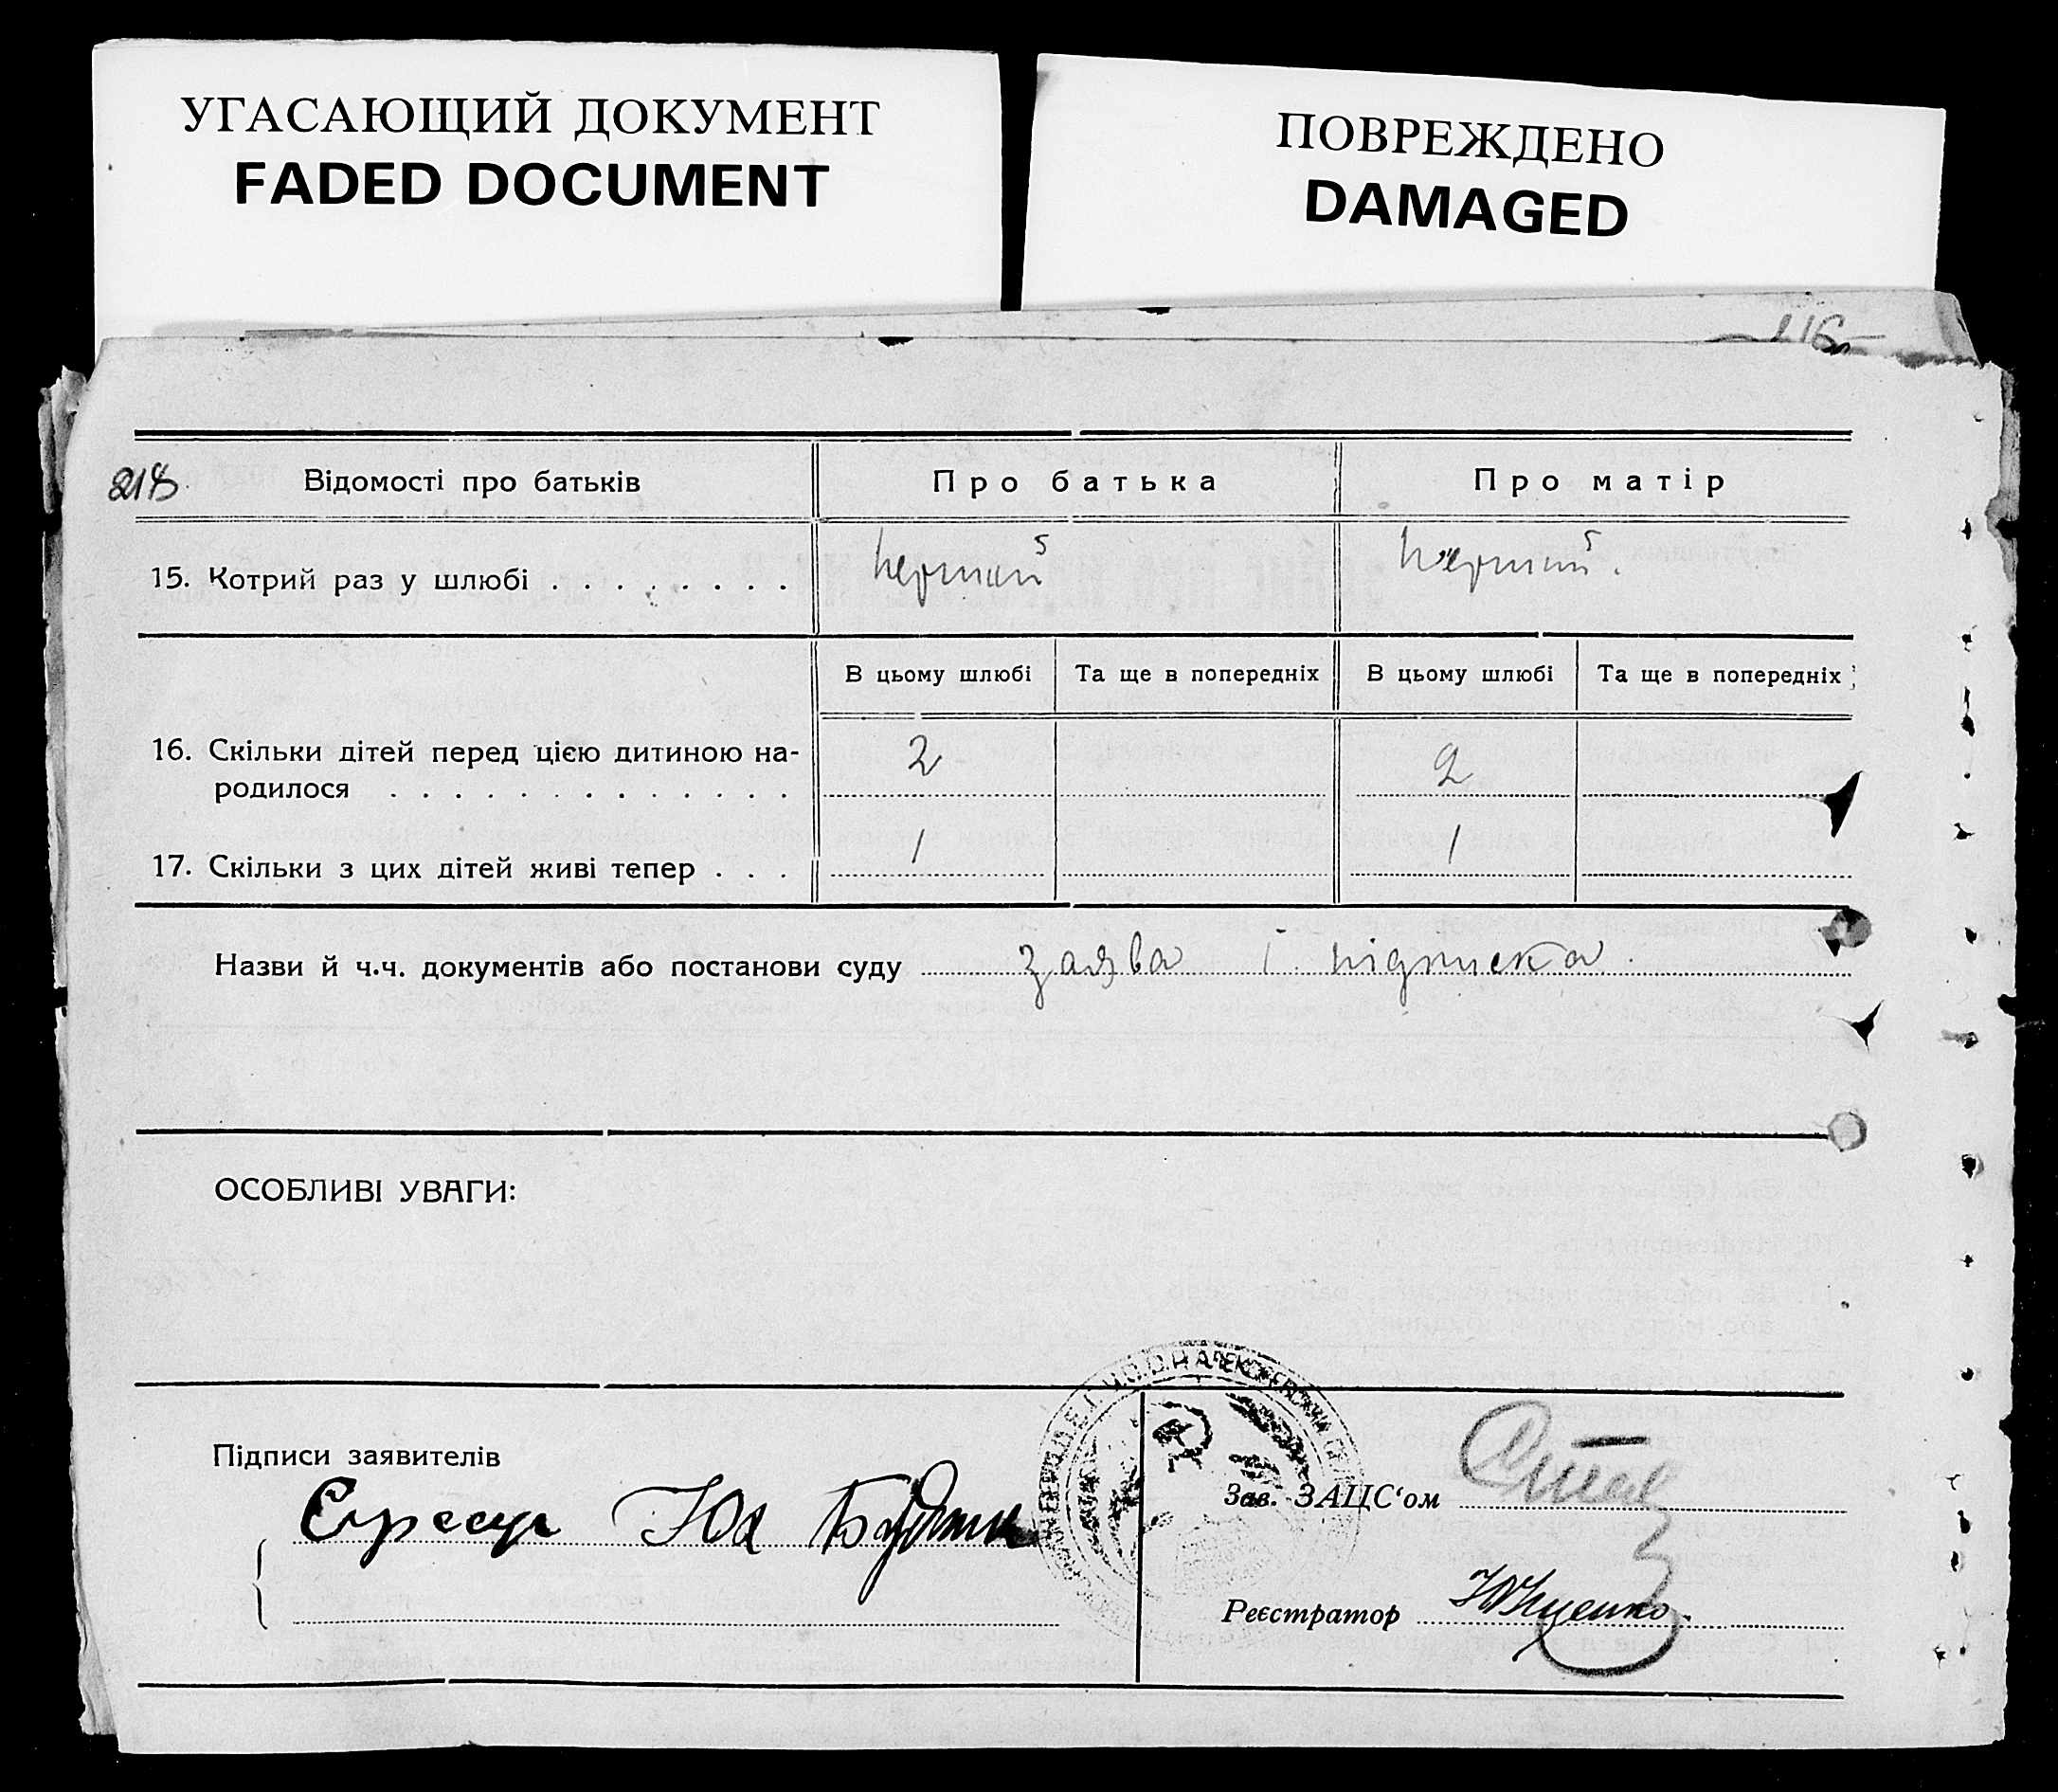 УГАСАЮЩИЙ ДОКУМЕНТ
FADED DOCUMENT
ПОВРЕЖДЕНО
DAMAGED
216
218
Відомості про батьків
Про батька
Про матір
15. Котрий раз у шлюбі . . . . . . . .
перший
перший.
В цьому шлюбі
Та ще в попередніх
В цьому шлюбі
Та ще в попередніх
16. Скільки дітей перед цією дитиною на-
родилося . . . . . . . . . . . . . .
2
2
17. Скільки з цих дітей живі тепер . . .
1
1
Назви й ч.ч. документів або постанови суду заява і підписка.
ОСОБЛИВІ УВАГИ:
Підписи заявителів
Зав. ЗАЦС‘ом
Реєстратор